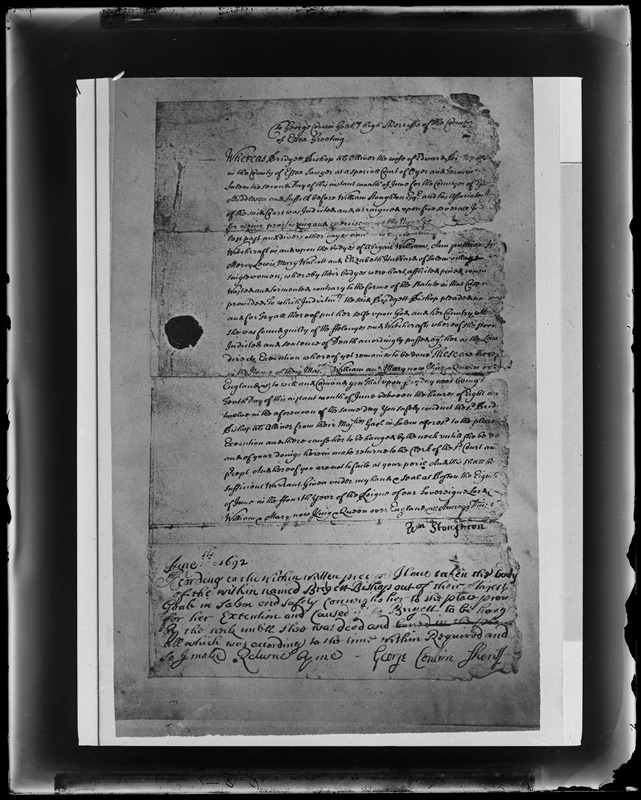 To George Corwin Gent. high Sherriffe of the County
of Essex Greeting
Whereas Bridgett Bishop als Olliver the wife of Edward Bishop
in the County of Essex Sawyer at a speciall Court of Oyer and Terminer
Salem the second Day of this instant month of June for the Countyes of
Middlesex and Suffolk before William Stoughton Esqr. and his Associates
of the said Court was Indicted and arraigned upon five severall
for useing practising and exercising
last past and divers other dayes
Witchcraft in and upon the bodyes of Abigail Williams, Ann puttnam
Mercy Lewis, Mary Walcott and Elizabeth Hubbard of Salem village
singlewomen; whereby their bodyes were hurt, afflicted pined
Wasted and tormented contrary to the forme of the Statute in that Case
provided To which Indictmts the said Bridgett Bishop pleaded no
and for Tryall thereof put her selfe upon God and her Country
she was found guilty of the ffelonyes and Witchcrafts whereof she stood
Indicted and sentence of Death accordingly passed agt her as the Law
directs Execution whereof yet remaines to be done These are therefore
in the Name of their Majties William and Mary now King & Queen over
England &c to will and Comand you That upon fryday next being
Tenth Day of this instant month of June between the houres of Eight and
twelve in the aforenoon of the same day You safely conduct the sd Bridgett
Bishop als Olliver from their Majties Gaol in Salem aforesd to the place
Execution and there cause her to be hanged by the neck untill she be
and of your doings herein make returne to the Clerk of the sd Court and
precept And hereof you are not to faile at your peril And this shall be
sufficient Warrant Given under my hand & seal at Boston the Eighth
of June in the ffourth Year of the Reigne of our Sovereigne Lords
William & Mary now King & Queen over England &c
Wm Stoughton
June 1692
According to the Within Written precept I have taken the body
of the within named Brigett Bishop out of their Majesties
Goale in Salem and safely Conveighd her to the place provided
for her Execution and Caused the sd Brigett to be hang
by the neck untill Shee was dead and buried in the place
all which was according to the time within Required and
So I make Returne by me - George Corwin Sheriff